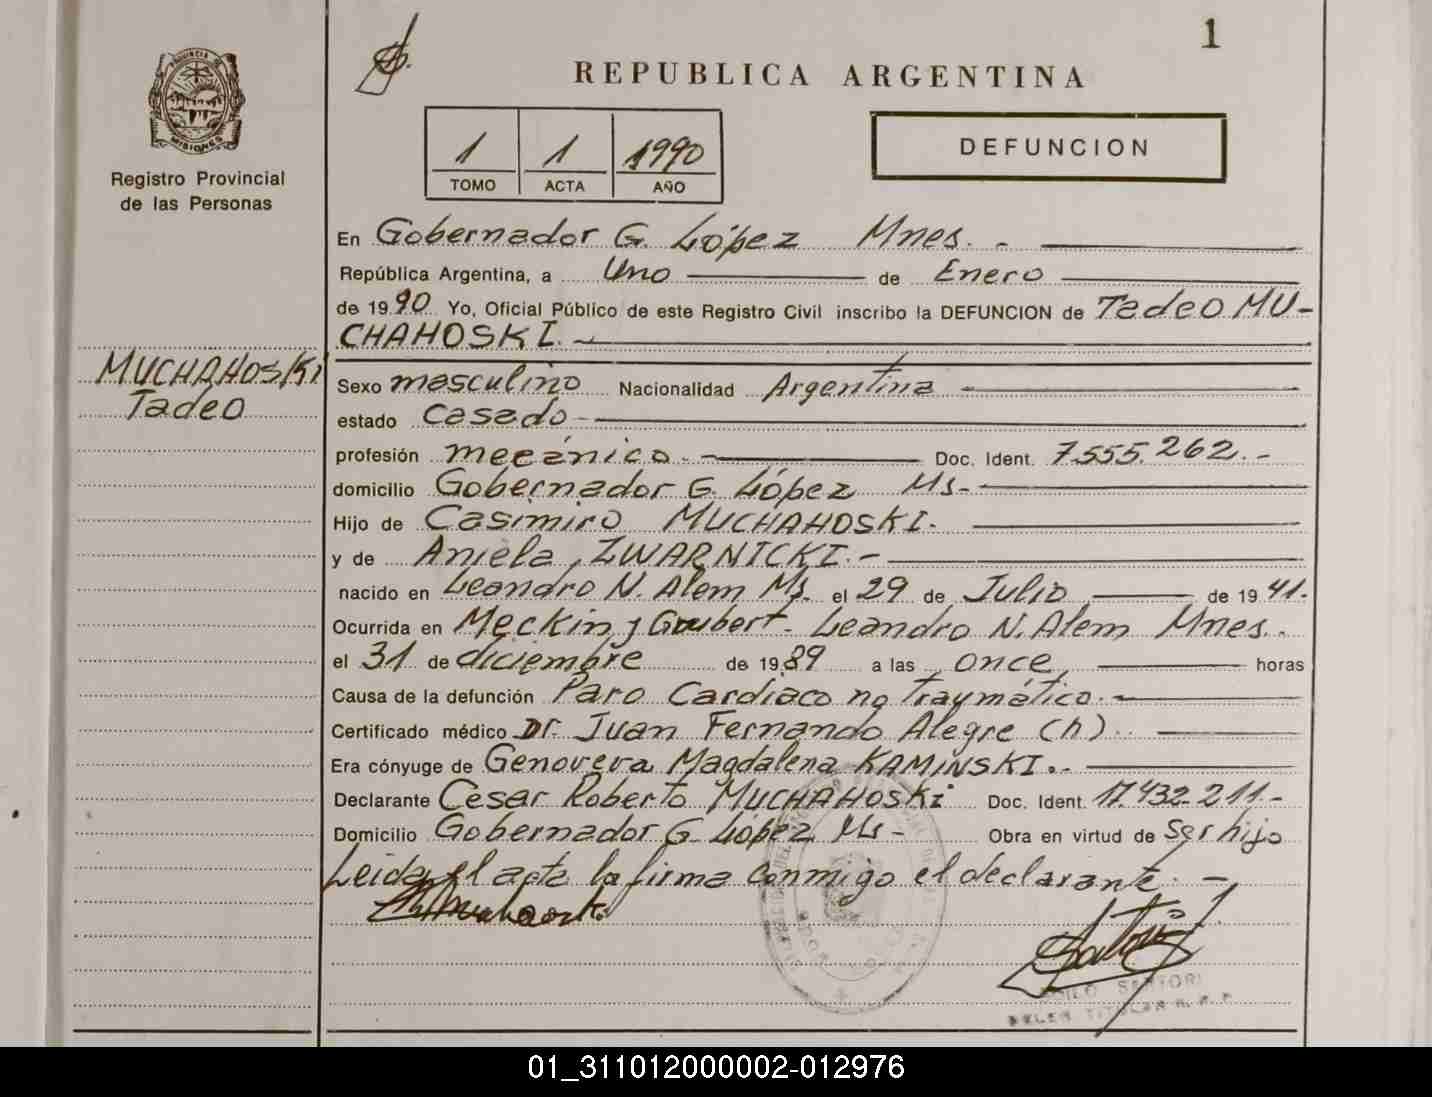 1
REPUBLICA ARGENTINA
PROVINCIA DE
MISIONES
Registro Provincial
de las Personas
1 1 1990
TOMO ACTA AÑO
DEFUNCION
En Gobernador G. López Mnes. -
República Argentina, a Uno de Enero
de 1990 Yo, Oficial Público de este Registro Civil inscribo la DEFUNCION de Tadeo MU-
CHAHOSKI. -
MUCHAHOSKI
Tadeo
Sexo masculino Nacionalidad Argentina
estado casado -
profesión mecánico. - Doc. Ident. 7.555.262. -
domicilio Gobernador G. López Ms. -
Hijo de Casimiro MUCHAHOSKI.
y de Aniela, ZWARNICKI. -
nacido en Leandro N. Alem Ms. el 29 de Julio de 19 41.
Ocurrida en Meckin y Leandro N. Alem Mnes.
el 31 de diciembre de 1989 a las once horas
Causa de la defunción Paro Cardiaco no traumático. -
Certificado médico Dr. Juan Fernando Alegre (h).
Era cónyuge de Genoveva Magdalena KAMINSKI. -
Declarante Cesar Roberto MUCHAHOSKi Doc. Ident. 17.432.211. -
Domicilio Gobernador G. López Ms - Obra en virtud de ser hijo
Leida el acta la firma conmigo el declarante. -
SARTORI
TITULAR
01_311012000002-012976